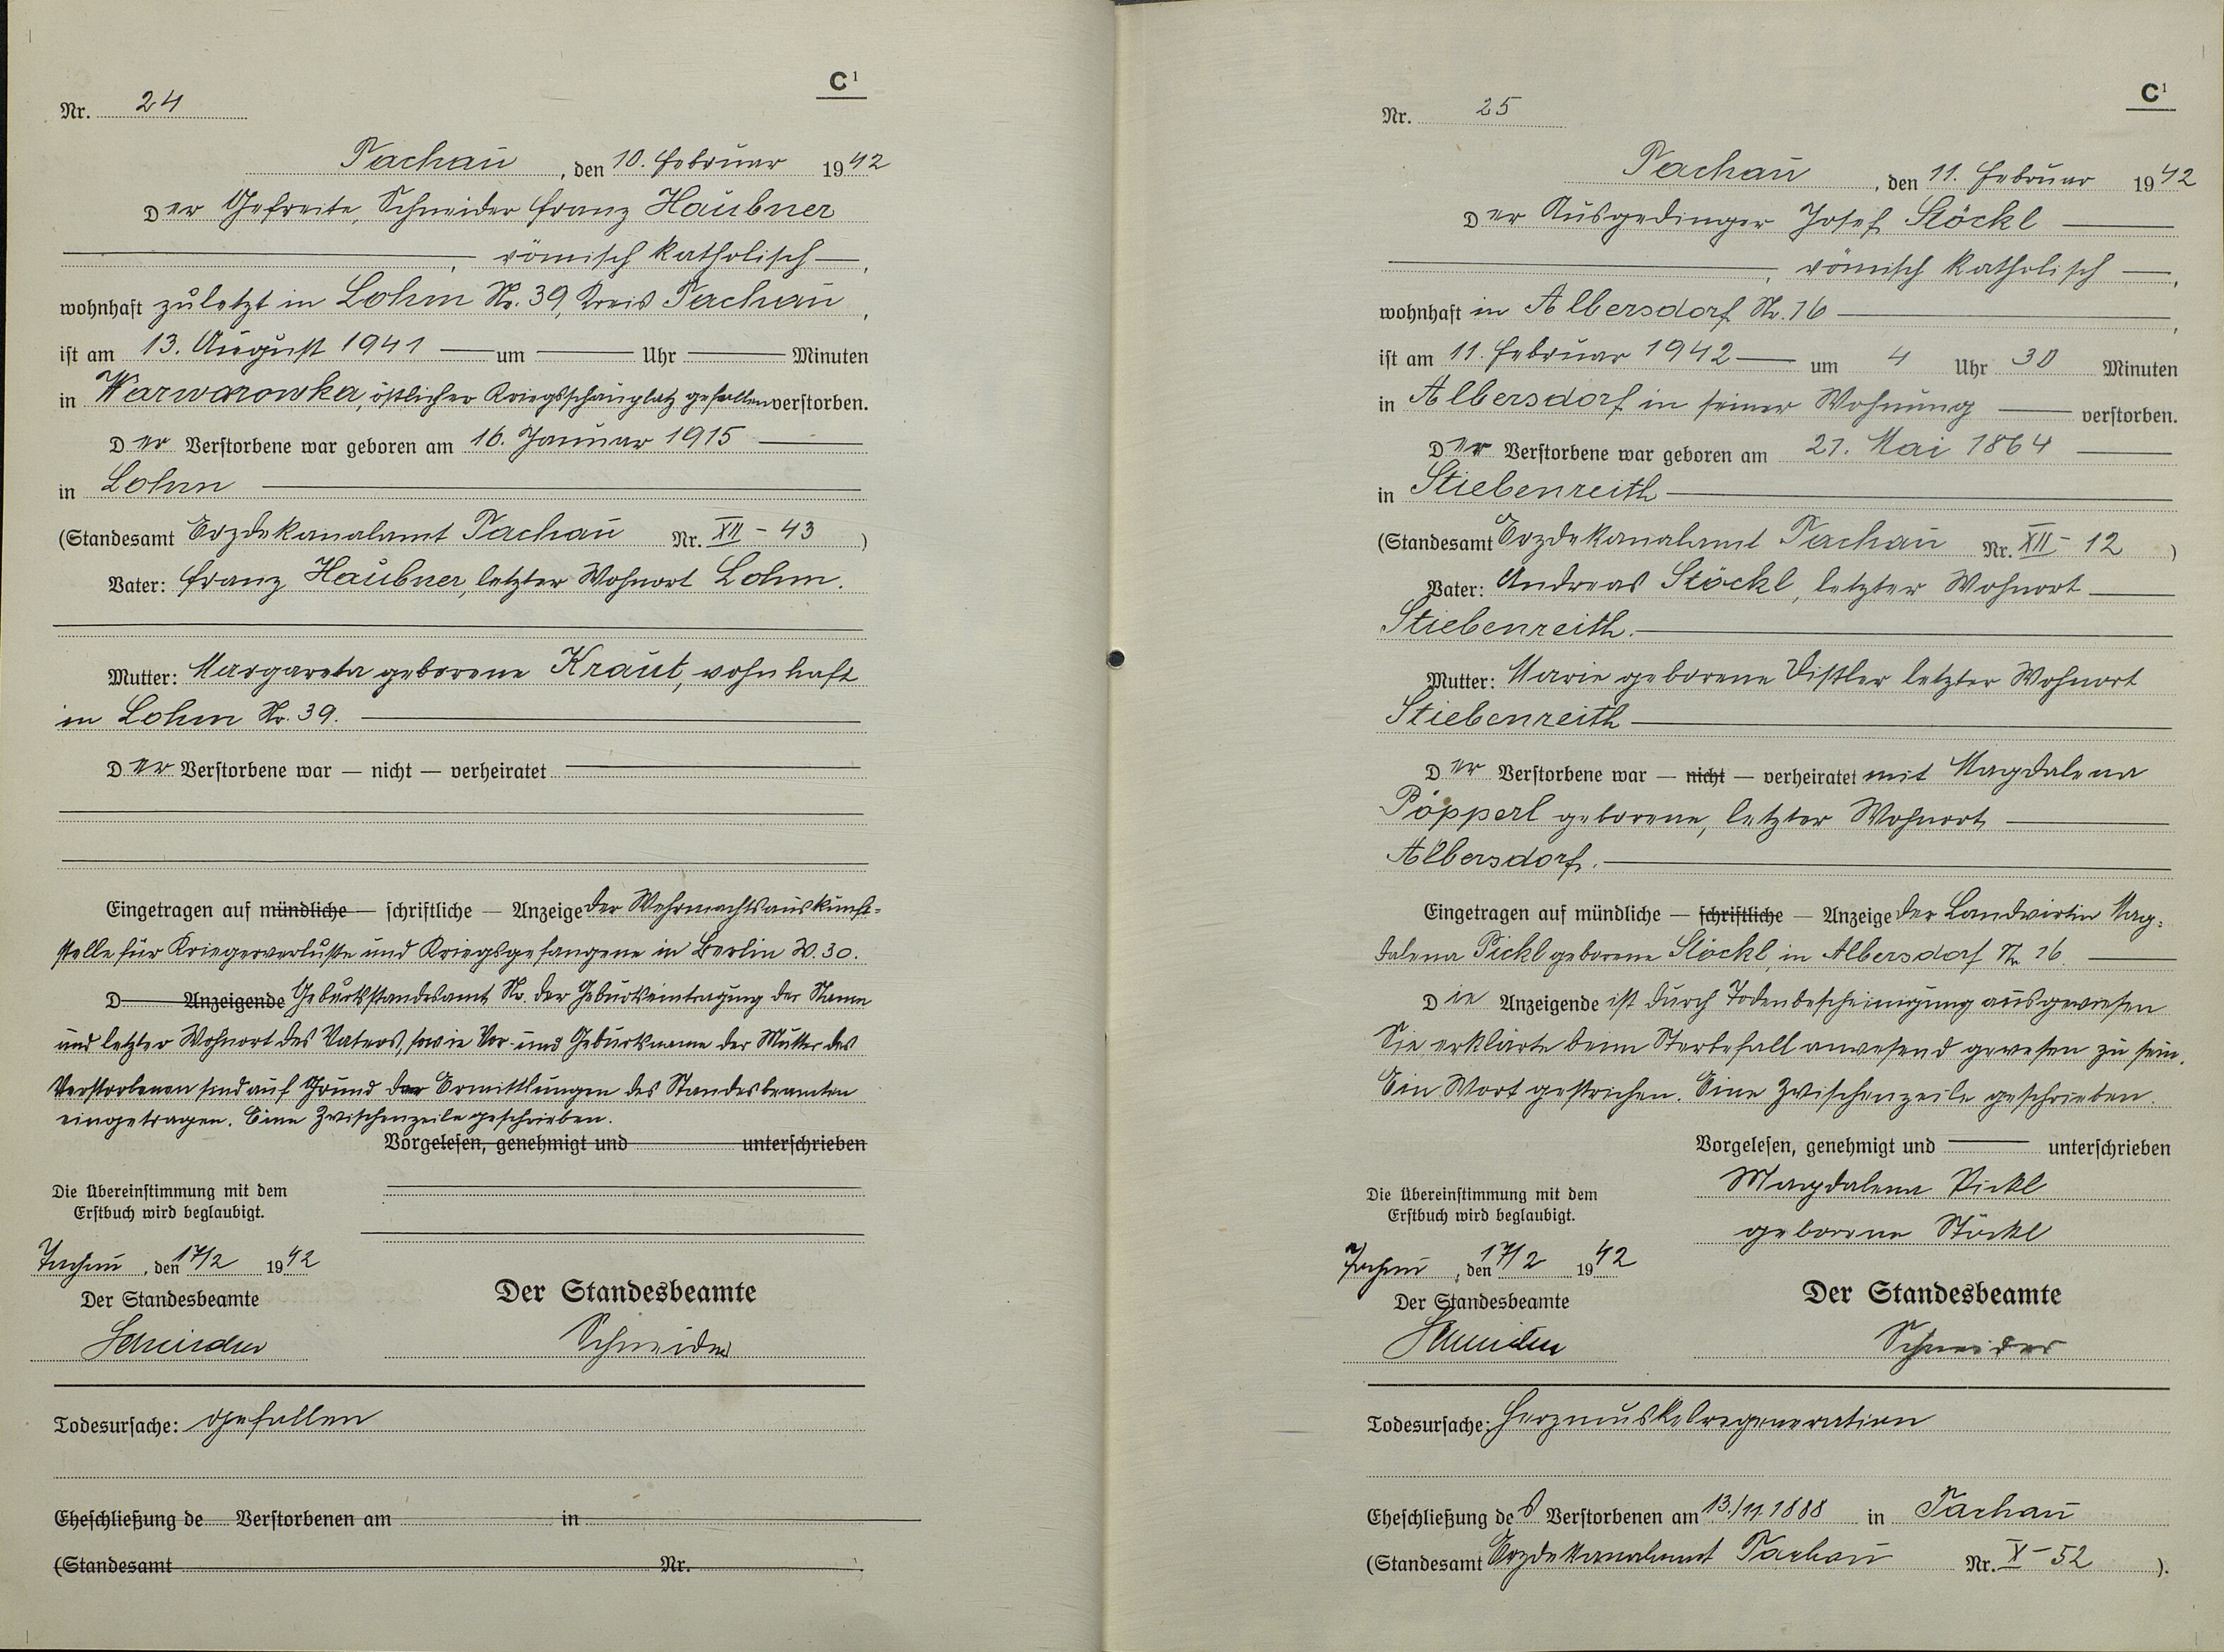 C¹
Nr. 24
Tachau, den 10. Februar 1942
Der Gefreite, Schneider Franz Haubner
, römisch katholisch ,
wohnhaft zuletzt in Lohm Nr. 39, Kreis Tachau ,
ist am 13. August 1941 um Uhr Minuten
in Warwarowka, östlicher Kriegsschauplatz gefallen verstorben.
Der Verstorbene war geboren am 16. Januar 1915
in Lohm
(Standesamt Erzdekanalamt Tachau Nr. XII - 43 )
Vater: Franz Haubner, letzter Wohnort Lohm.
Mutter: Margareta geborene Kraut, wohnhaft
in Lohm Nr. 39.
Der Verstorbene war — nicht — verheiratet
Eingetragen auf mündliche — schriftliche — Anzeige der Wehrmachtsauskunft=
stelle für Kriegerverluste und Kriegsgefangene in Berlin W. 30.
D Anzeigende Geburtsstandesamt, Nr. der Geburtseintragung der Name
und letzter Wohnort des Vaters, sowie Vor- und Geburtsname der Mutter des
Verstorbenen sind auf Grund der Ermittlungen des Standesbeamten
eingetragen. Eine Zwischenzeile geschrieben.
Vorgelesen, genehmigt und unterschrieben
Die Übereinstimmung mit dem
Erstbuch wird beglaubigt.
Tachau, den 17/2 1942
Der Standesbeamte
Schneider
Der Standesbeamte
Schneider
Todesursache: gefallen
Eheschließung de Verstorbenen am in
(Standesamt Nr. )
C¹
Nr. 25
Tachau, den 11. Februar 1942
Der Ausgedinger Josef Stöckl
, römisch katholisch ,
wohnhaft in Albersdorf Nr. 16 ,
ist am 11. Februar 1942 um 4 Uhr 30 Minuten
in Albersdorf in seiner Wohnung verstorben.
Der Verstorbene war geboren am 21. Mai 1864
in Stiebenreith
(Standesamt Erzdekanalamt Tachau Nr. XII - 12 )
Vater: Andreas Stöckl, letzter Wohnort
Stiebenreith.
Mutter: Marie geborene letzter Wohnort
Stiebenreith
Der Verstorbene war — nicht — verheiratet mit Magdalena
Pöpperl geborene, letzter Wohnort
Albersdorf.
Eingetragen auf mündliche — schriftliche — Anzeige der Landwirtin Mag=
dalena Pickl geborene Stöckl, in Albersdorf Nr. 16.
Die Anzeigende ist durch Todenbescheinigung ausgewiesen
Sie erklärte beim Sterbefall anwesend gewesen zu sein.
Ein Wort gestrichen. Eine Zwischenzeile geschrieben.
Vorgelesen, genehmigt und unterschrieben
Magdalena Pickl
geborene Stöckl
Die Übereinstimmung mit dem
Erstbuch wird beglaubigt.
Tachau, den 17/2 1942
Der Standesbeamte
Schneider
Der Standesbeamte
Schneider
Todesursache: Herzmuskelregeneration
Eheschließung des Verstorbenen am 13./11. 1888 in Tachau
(Standesamt Erzdekanalamt Tachau Nr. X - 52 ).